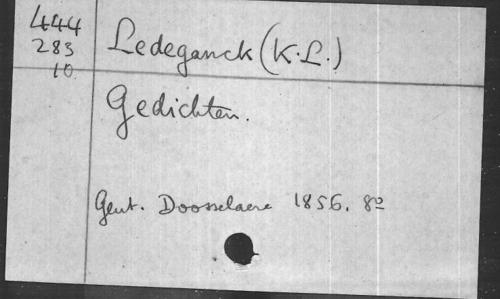 444
283
10
Ledeganck (K.L.)
Gedichten.
Gent. Doosselaere 1856. 8º